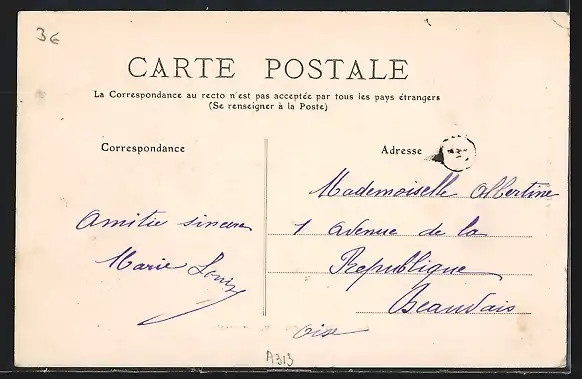 3€
CARTE POSTALE
La Correspondance au recto n'est pas acceptée par tous les pays étrangers
(Se renseigner à la Poste)
Correspondance
Adresse
Amitié sincère
Marie Louise
Mademoiselle Albertine
1 Avenue de la
République
Beauvais
Oise
A313